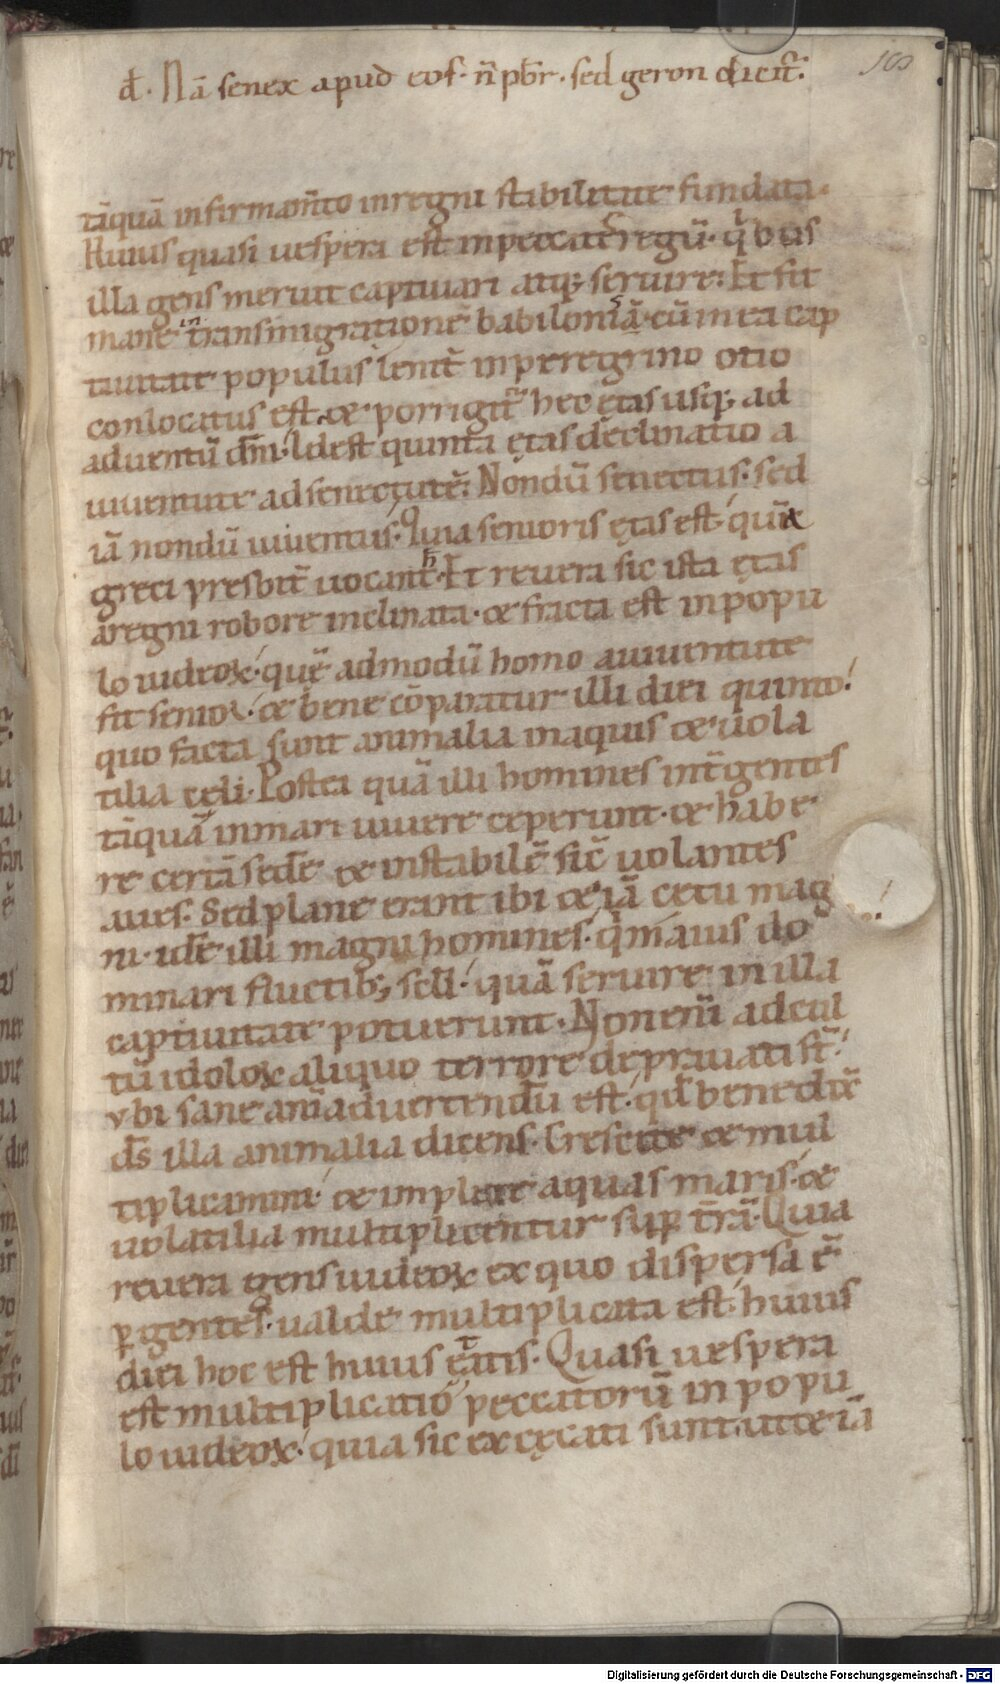 đ. Nā senex apud eos. n̄ pb̄r. sed geron dicit᷑.
103
tāquā in firmam̄to in regni stabilitate fundata.
Huius quasi uespera est in peccat̄ regū. q̓bus
illa gens meruit captiuari atq; seruire. Et fit
mane in transmigrationē babiloniā. cū in ea cap
tiuitate populus lenit̄ in peregrino otio
conlocatus est. & porrigit᷑ hec ętas usq; ad
aduentū dn̄i. Idest quinta ętas declinatio a
iuuentute ad senectutē. Nondū senectus. sed
iā nondū iuuentus. Quia senioris ętas est. quē
greci presbit̄ uocant. Et reuera sic ista ętas
a regni robore inclinata. & fracta est in popu
lo iudeoꝝ. quē admodū homo a iuuentute
fit senior. & bene cōparatur illi diei quinto.
quo facta sunt animalia in aquis & uola
tilia cęli. Postea quā illi homines int̄ gentes
tāquā in mari uiuere ceperunt. & habe
re certā sedē & instabilē sic̄ uolantes
aues. Sed plane erant ibi & iā cetu mag
ni. idē illi magni homines. q̓ magis do
minari fluctib; scl̄i. quā seruire in illa
captiuitate potuerunt. Non enī ad cul
tū idoloꝝ aliquo terrore deprauati st̄.
vbi sane anīaduertendū est. qd̄ benedix̄
ds̄ illa animalia dicens. Crescite & mul
tiplicamini. & implete aquas maris. &
uolatilia multiplicentur sup̄ t̄rā. Quia
reuera gens iudeoꝝ ex quo dispersa ē
ꝑ gentes. ualde multiplicata est. huius
diei hoc est huius ętatis. Quasi uespera
est multiplicatio peccatorū in popu
lo iudeoꝝ. quia sic excęcati sunt. utte iā
Digitalisierung gefördert durch die Deutsche Forschungsgemeinschaft - DFG